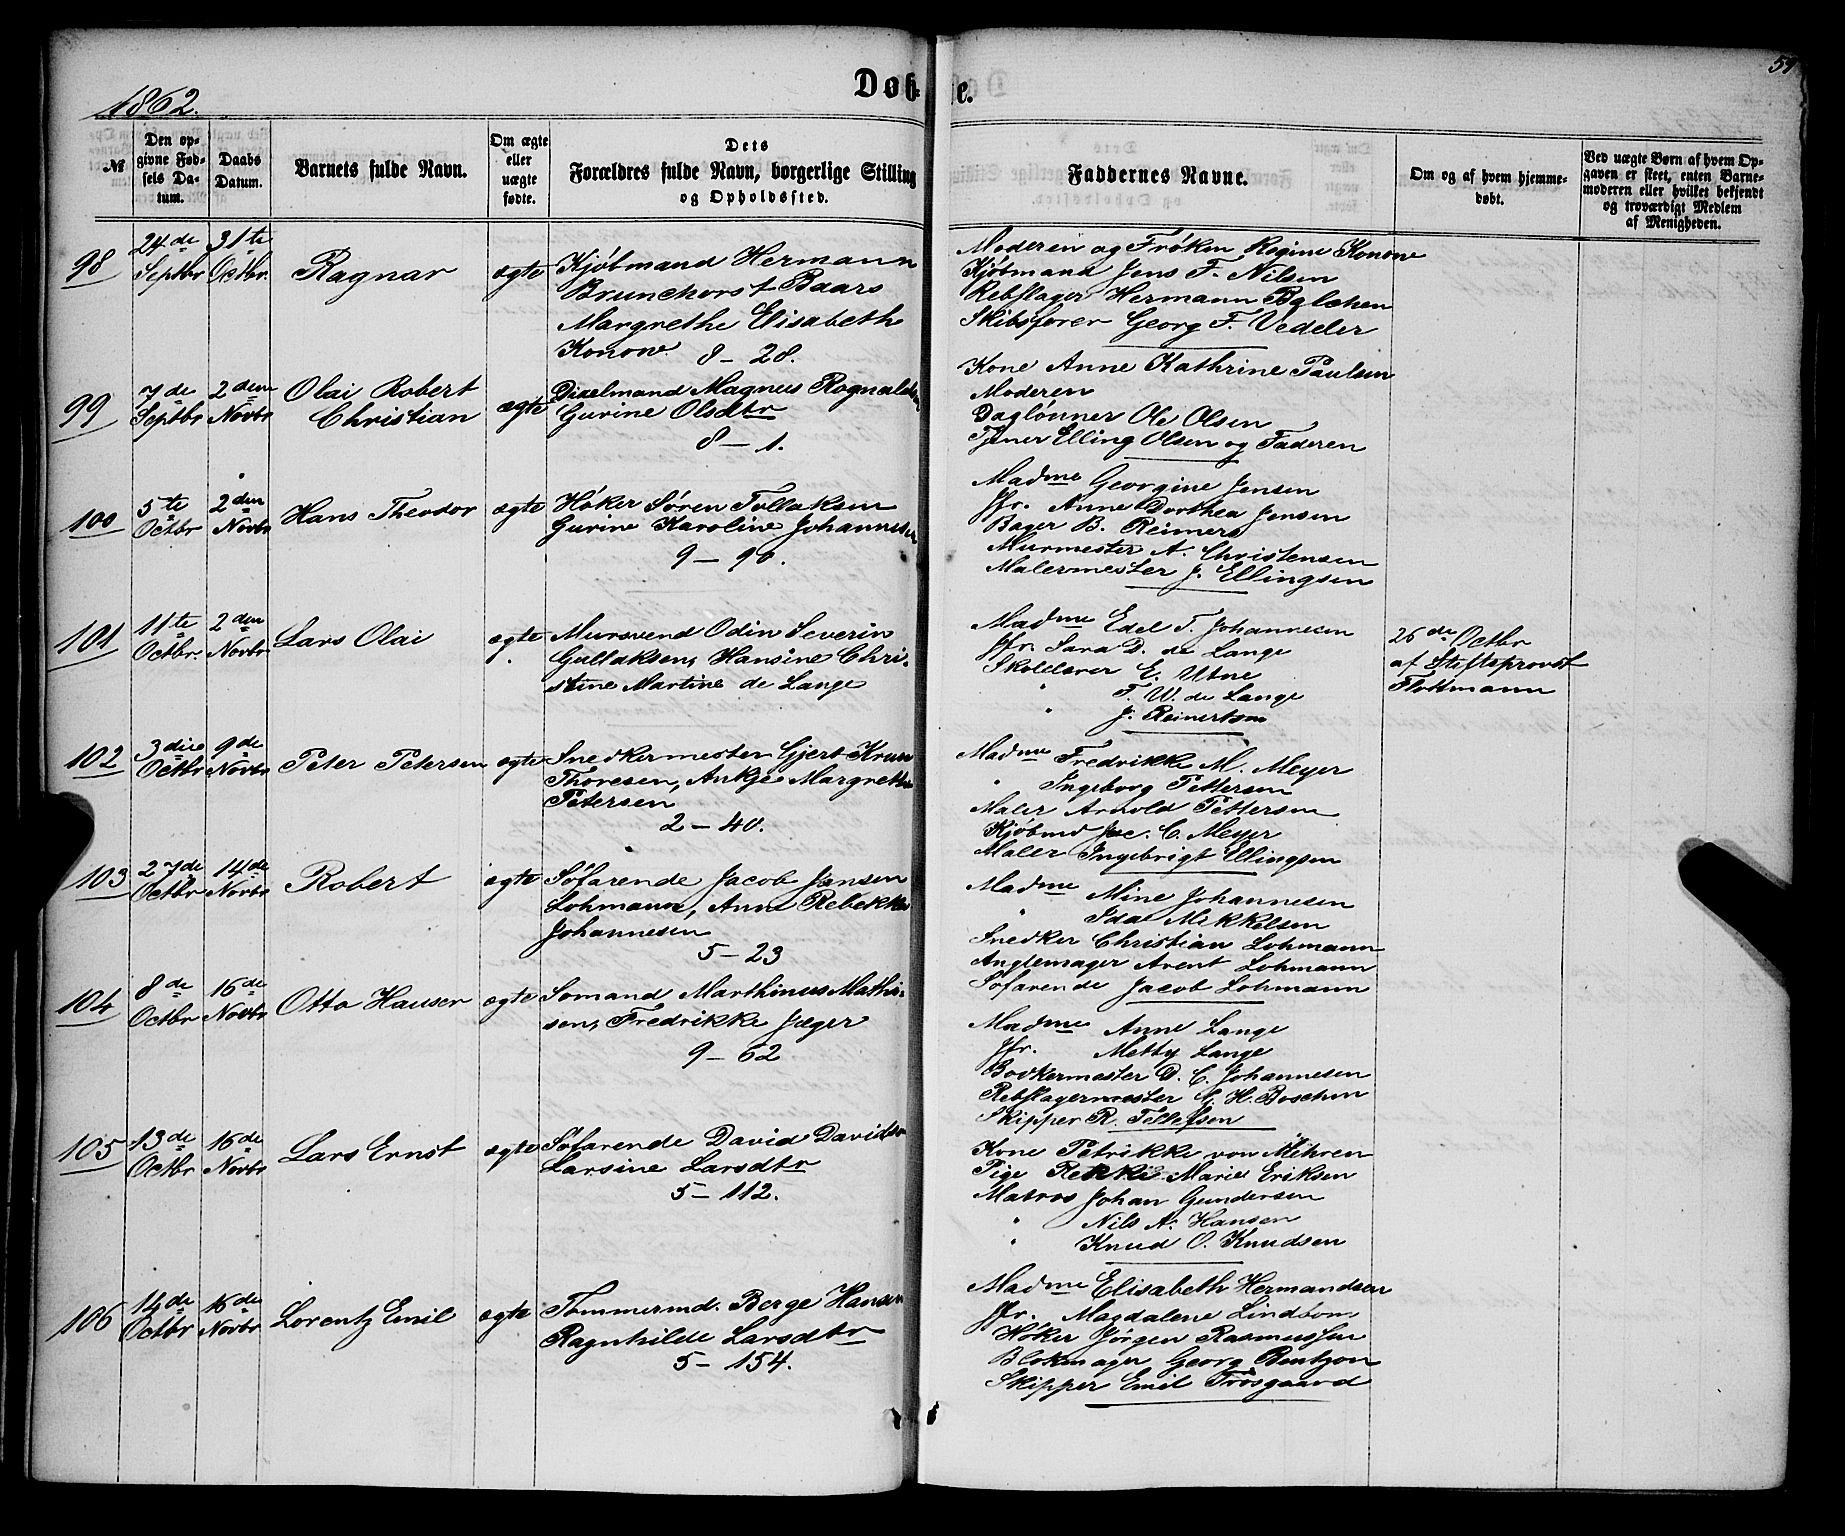 1862.
Døbte.
59
№
Den opgivne Fødsels Datum.
Daabs Datum.
Barnets fulde Navn.
Om ægte eller uægte fødte.
Dets Forældres fulde Navn, borgerlige Stilling og Opholdssted.
Faddernes Navne.
Om og af hvem hjemmedøbt.
Ved uægte Børn af hvem Opgaven er skeet, enten Barnemoderen eller hvilket bekjendt og troværdigt Medlem af Menigheden.
98
24de Septbr
31te Octbr.
Ragnar
ægte
Kjøbmand Hermann
Brunchorst Baars
Margrethe Elisabeth
Konow. 8 – 28.
Moderen og Frøken Regine Konow
Kjøbmand Jens F. Nilsen
Rebslager Hermann Balchen
Skibsfører Georg F. Vedeler
99
7de Septbr
2den Novbr
Olai Robert
Christian
ægte
Dixelmand Magnus Rognaldsen
Gurine Olsdtr
8 – 1.
Kone Anne Kathrine Paulsen
Moderen
Daglønner Ole Olsen
Tjener Elling Olsen og Faderen
100
5te Octbr
2den Novbr
Hans Theodor
ægte
Høker Søren Tollaksen
Gurine Karoline Johannesen
9 – 90.
Madme Georgine Jensen
Jfr. Anne Dorthea Jensen
Bager B. Reimers
Murmester A. Christensen
Malermester J. Ellingsen
101
11te Octbr.
2den Novbr
Lars Olai
ægte
Mursvend Odin Severin
Gullaksen, Hansine Chri-
stine Martine de Lange
Madme Edel T. Johannesen
Jfr. Sara D. de Lange
Skolelærer E. Utne
" F. W. de Lange
J. Reinertsen
26de Octbr
af Stiftsprovst
Flottmann
102
3die Octbr
9de Novbr
Peter Petersen
ægte
Snedkermester Gjert Kruse
Thoresen, Ankje Margrethe
Petersen
2 – 40.
Madme Fredrikke M. Meyer
" Ingeborg Pettersen
Maler Arnold Pettersen
Kjøbmd Jac. C. Meyer
Maler Ingebrigt Ellingsen
103
27de Octbr
14de Novbr
Robert
ægte
Søfarende Jacob Jansen
Lohmann, Anne Rebekka
Johannesen
5 – 23
Madme Mine Johannesen
" Ida Mikkelsen
Snedker Christian Lohmann
Anglemager Arent Lohmann
Søfarende Jacob Lohmann
104
8de Octbr
16de Novbr
Otto Hauser
ægte
Sømand Marthinus Mathi-
sen, Fredrikke Jæger
9 – 62
Madme Anne Lange
Jfr. Metty Lange
Bødkermester D. C. Johannesen
Rebslagermester H. Boschen
Skipper R. Tellefsen
105
13de Octbr
16de Novbr
Lars Ernst
ægte
Søfarende David Davidsen
Larsine Larsdtr
5 – 112.
Kone Petrikke von Mehren
Pige Rekke Marie Eriksen
Matros Johan Gundersen
" Nils A. Hansen
" Knud O. Knudsen
106
14de Octbr
16de Novbr
Lorentz Emil
ægte
Tømmermd. Berge Hansen
Ragnhilde Larsdtr
5 – 154.
Madme Elisabeth Hermandsen
Jfr. Magdalene Lindbom
Høker Jørgen Rasmussen
Blokmager Georg Bentzon
Skipper Emil Frøsgaard